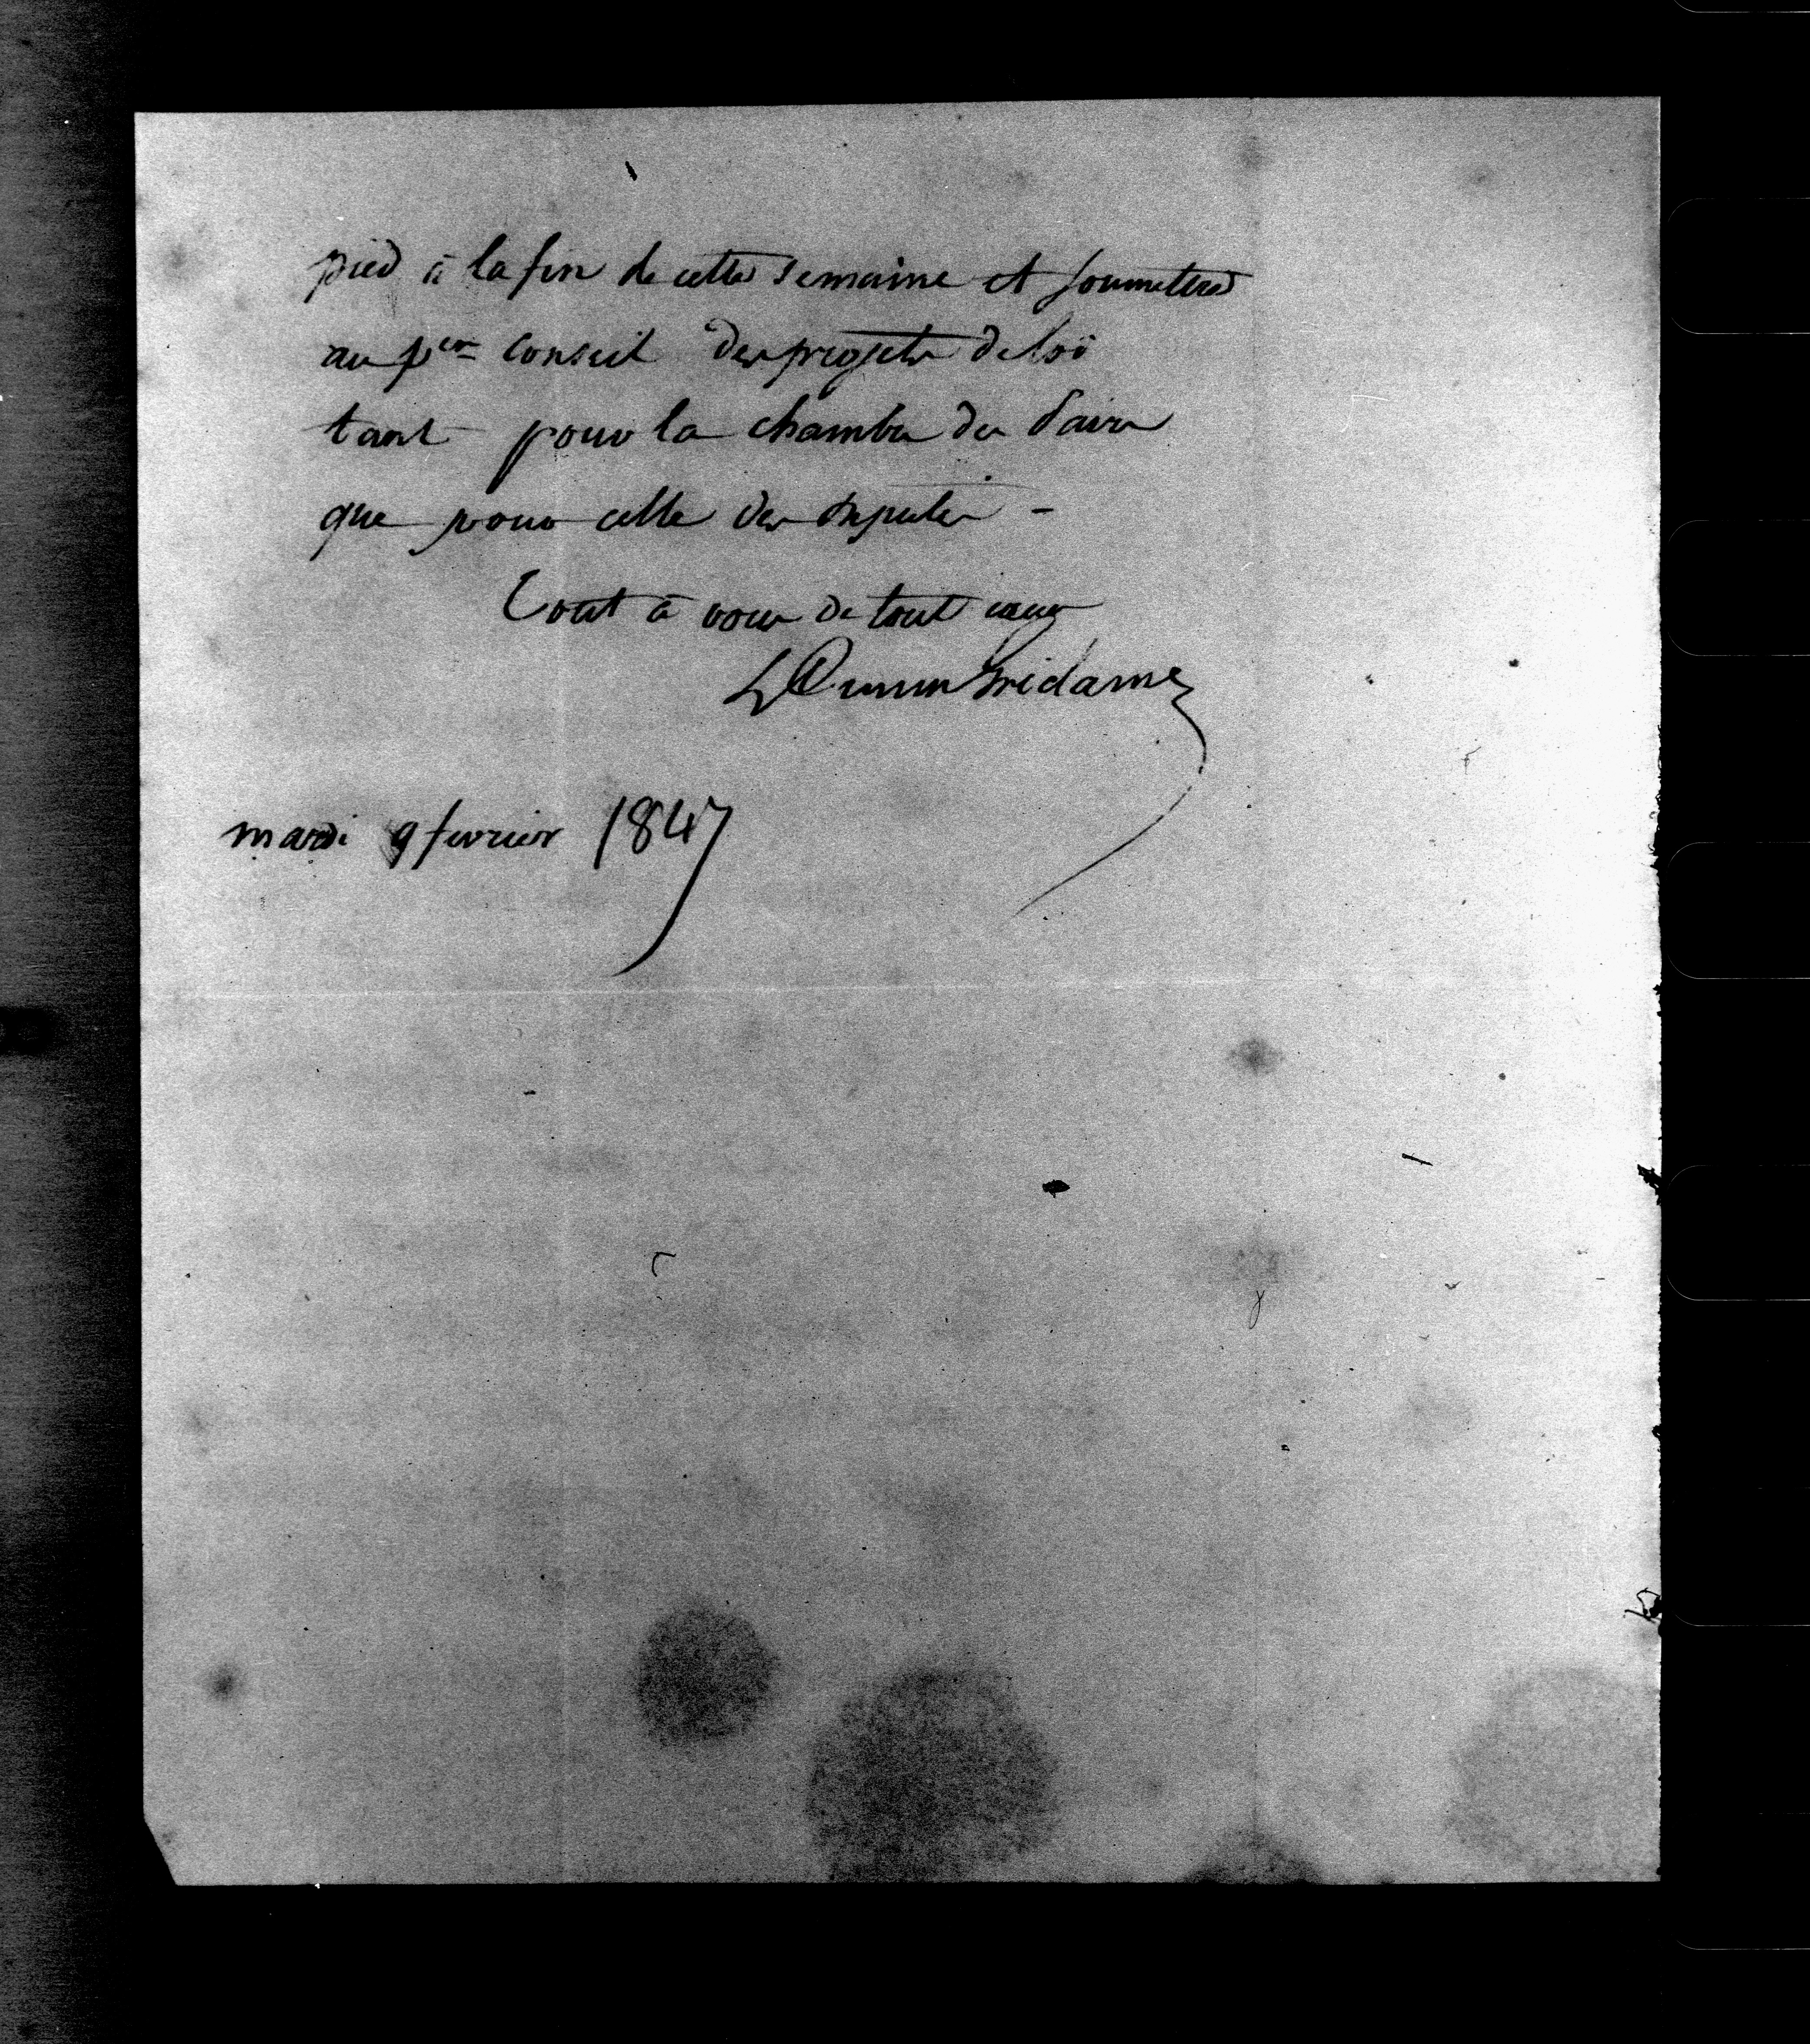 pied à la fin de cette semaine et soumettre
au p.er conseil des projets de loi
tant pour la chambre des Pairs
que pour celle des députés -
Tout à vous de tout cœur
L Cunin Gridaine
mardi 9 fevrier 1847